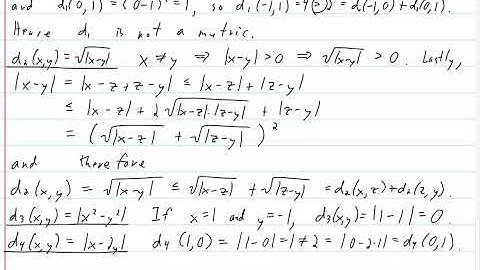 and d₁(0,1) = (0-1)² = 1, so d₁(-1,1) = 4 > 2 = d₁(-1,0) + d₁(0,1).
Hence d₁ is not a metric.
d₂(x,y) = √|x-y| x ≠ y ⇒ |x-y| > 0 ⇒ √|x-y| > 0. Lastly,
|x-y| = |x-z+z-y| ≤ |x-z| + |z-y|
≤ |x-z| + 2√|x-z|·|z-y| + |z-y|
= (√|x-z| + √|z-y|)²
and therefore
d₂(x,y) = √|x-y| ≤ √|x-z| + √|z-y| = d₂(x,z) + d₂(z,y).
d₃(x,y) = |x²-y²| If x=1 and y=-1, d₃(x,y) = |1-1| = 0.
d₄(x,y) = |x-2y| d₄(1,0) = |1-0| = 1 ≠ 2 = |0-2·1| = d₄(0,1).